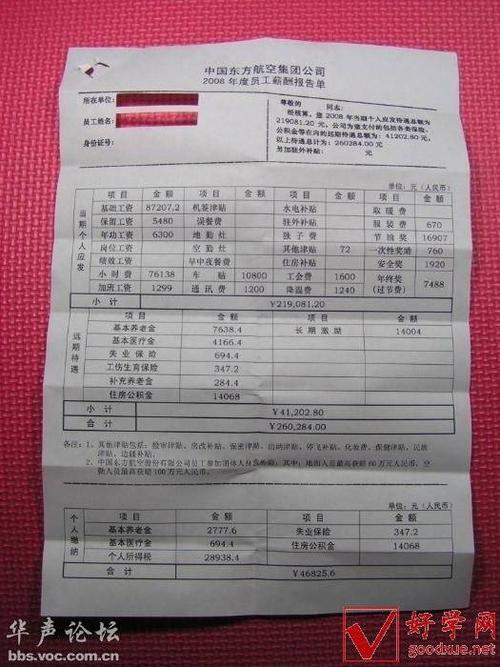 中国东方航空集团公司
2008年度员工薪酬报告单
所在单位：
员工姓名：
身份证号：
尊敬的 同志：
经核算，您2008年当期个人应发待遇总额为
219081.20元，公司为您支付的包括各类保险、
公积金等在内的远期待遇总额为：41202.80元，
以上待遇总计为：260284.00元
另加驻外补贴： 元
单位：元（人民币）
当期个人应发
项目 金额 项目 金额 项目 金额 项目 金额
基础工资 87207.2 机签津贴 水电补贴 取暖费
保留工资 5480 误餐费 驻外补贴 服装费 670
年功工资 6300 地勤灶 独子费 节油奖 16907
岗位工资 空勤灶 其他津贴 72 一次性奖励 760
绩效工资 早中夜餐费 住房补贴 安全奖 1920
小时费 76138 车贴 10800 工会费 1600 年终奖（过节费） 7488
加班工资 1299 通讯费 1200 降温费 1240
小计 ￥219,081.20
远期待遇
项目 金额 项目 金额
基本养老金 7638.4 长期激励 14004
基本医疗金 4166.4
失业保险 694.4
工伤生育保险 347.2
补充养老金 284.4
住房公积金 14068
小计 ￥41,202.80
合计 ￥260,284.00
备注：1、其他津贴包括：检审津贴、房改补贴、保密津贴、出纳津贴、停飞补贴、化妆费、保健津贴、民族
津贴、边疆补贴。
2、中国东方航空股份有限公司员工参加团体人身意外险：其中：地面人员最高获赔60万元人民币，空
勤人员最高获赔100万元人民币。
单位：元（人民币）
个人缴纳
项目 金额 项目 金额
基本养老金 2777.6 失业保险 347.2
基本医疗金 694.4 住房公积金 14068
个人所得税 28938.4
合计 ￥46825.6
华声论坛
bbs.voc.com.cn
好学网
goodxue.net